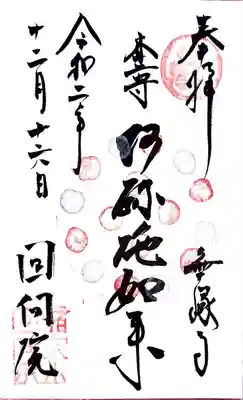 奉拝
無縁寺
本尊
阿弥陀如来
令和二年
十二月十六日
回向院